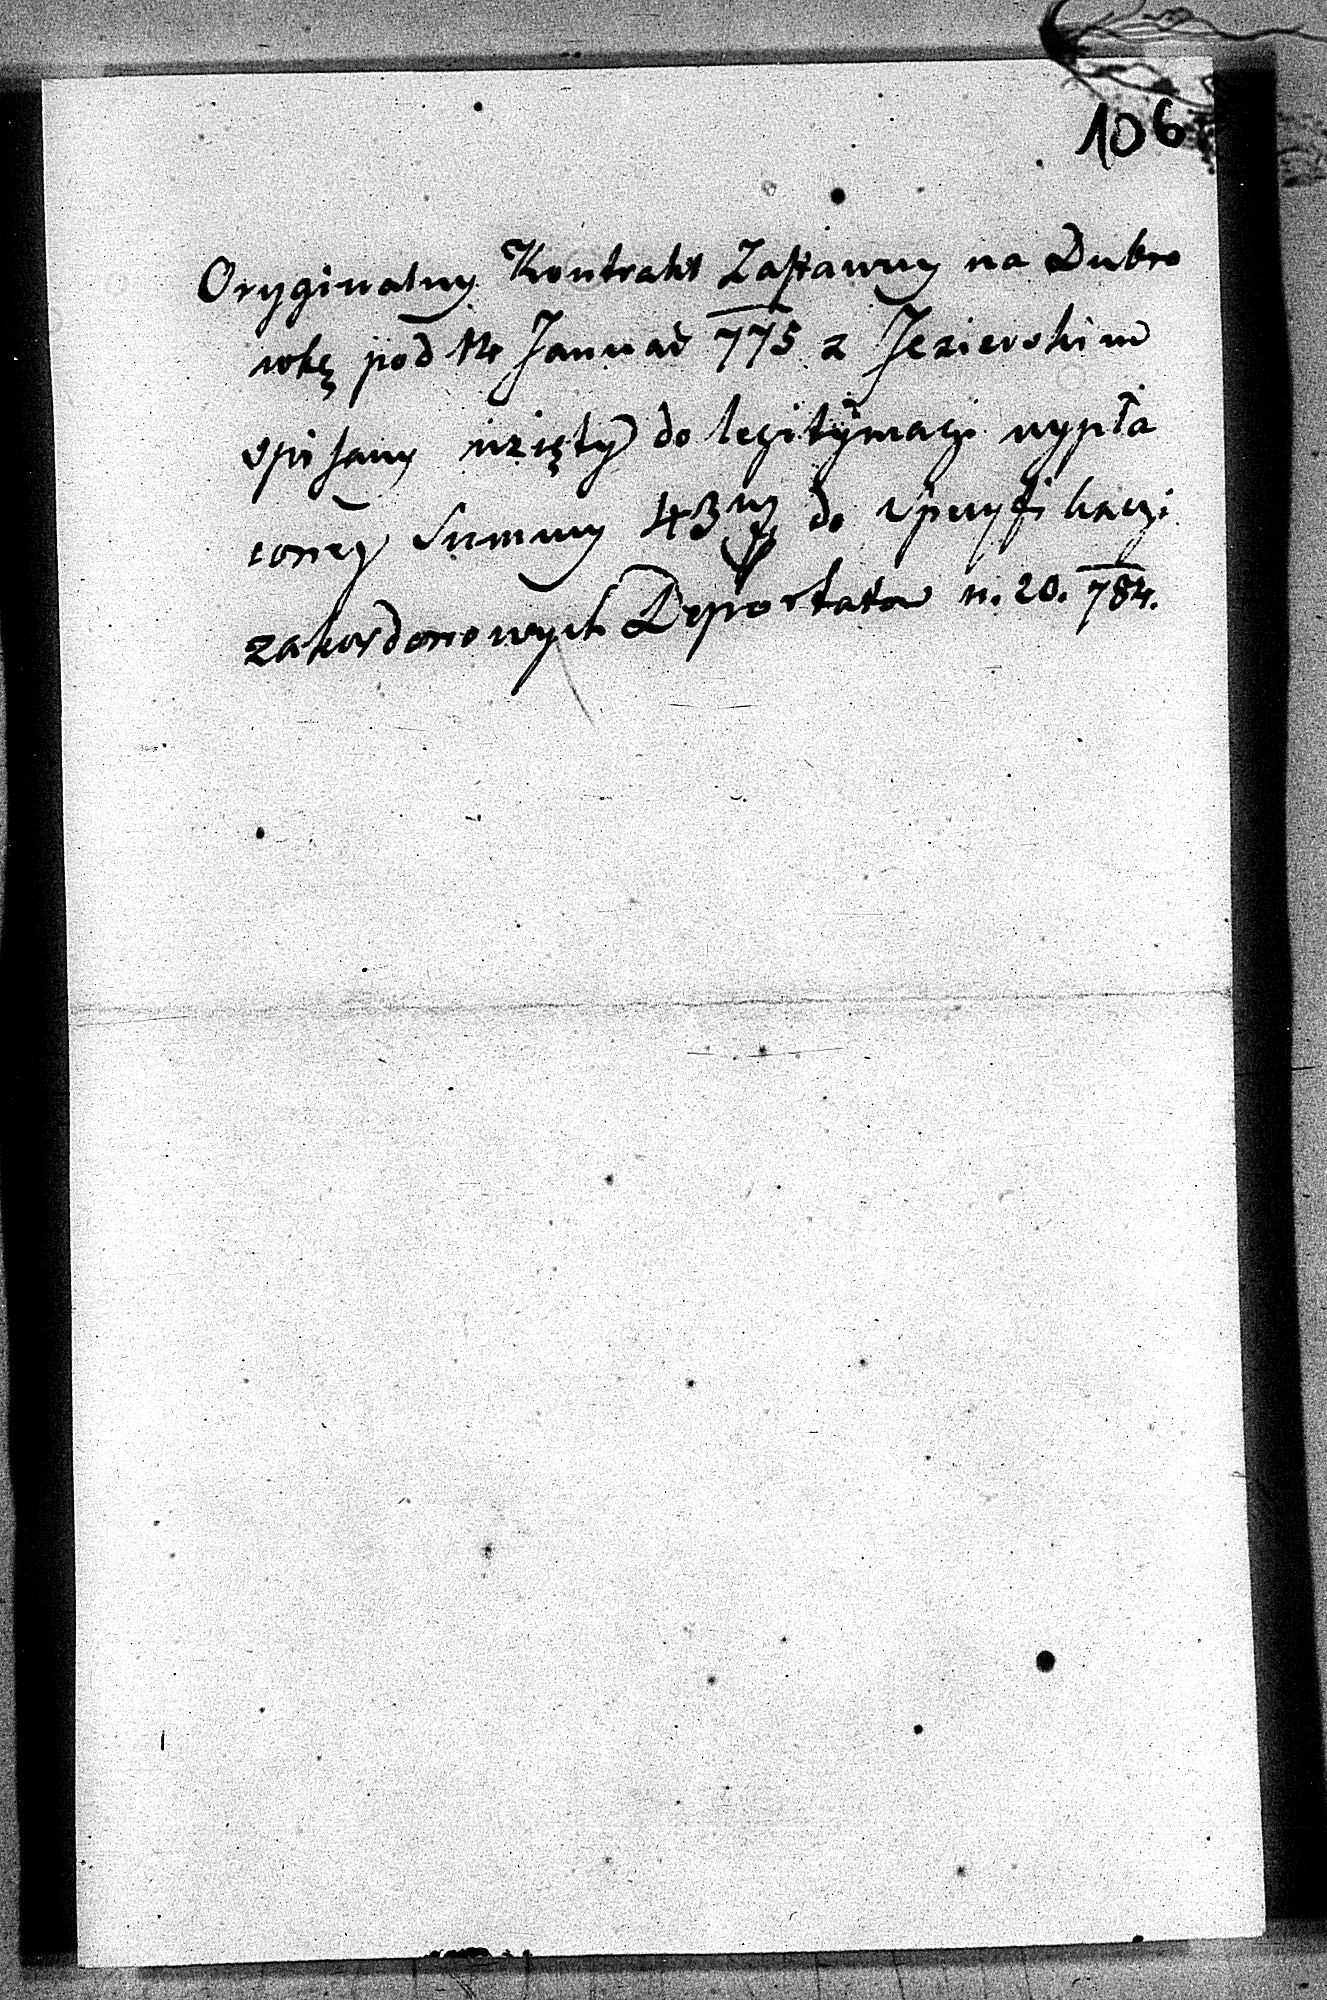 106
Oryginalny Kontrakt Zastawny na Dubro
wkę pod 14 Januar 775 z Jezierskim
spisany wzięty do legitymacyi wypła
coney Summy 43 m do specyfikacyi
zakordonowych Deportatow n. 20. 784.